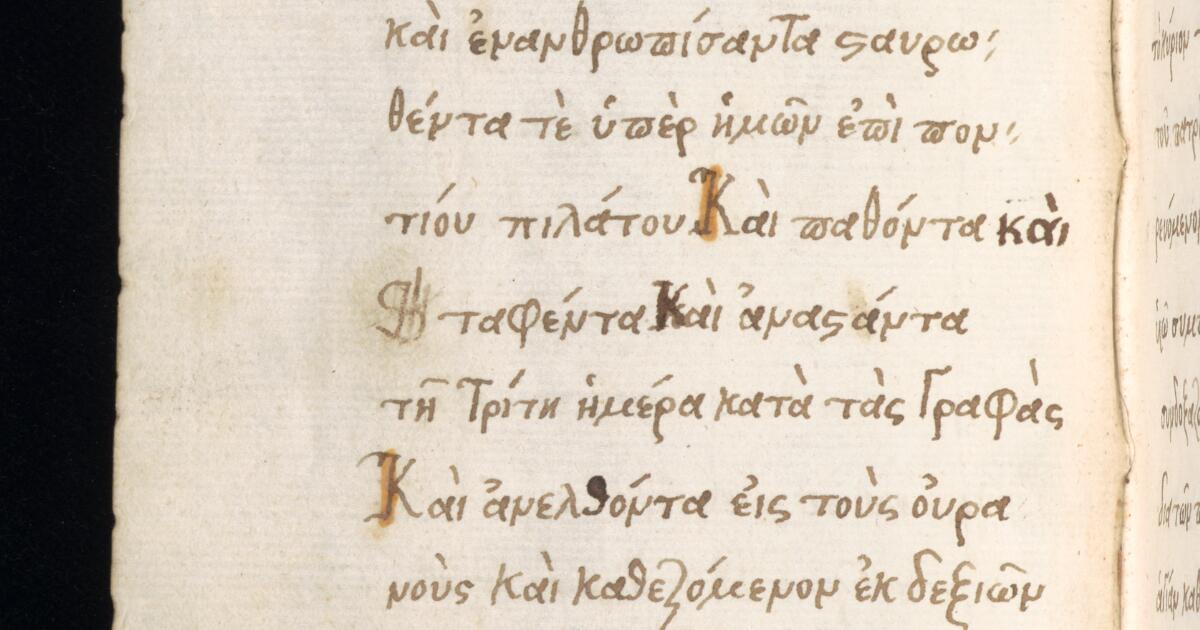 καὶ ἐνανθρωπίσαντα ϛαυρω
θέντα τὲ ὑπὲρ ἡμῶν ἐπὶ πον
τίου πιλάτου Καὶ παθόντα καὶ
ταφέντα Καὶ ἀναϛάντα
τῆ Τρίτη ἡμέρα κατὰ τὰς Γραφὰς
Καὶ ἀνελθόντα εἰς τοὺς οὐρα
νοὺς καὶ καθεζόμενον ἐκ δεξιῶν